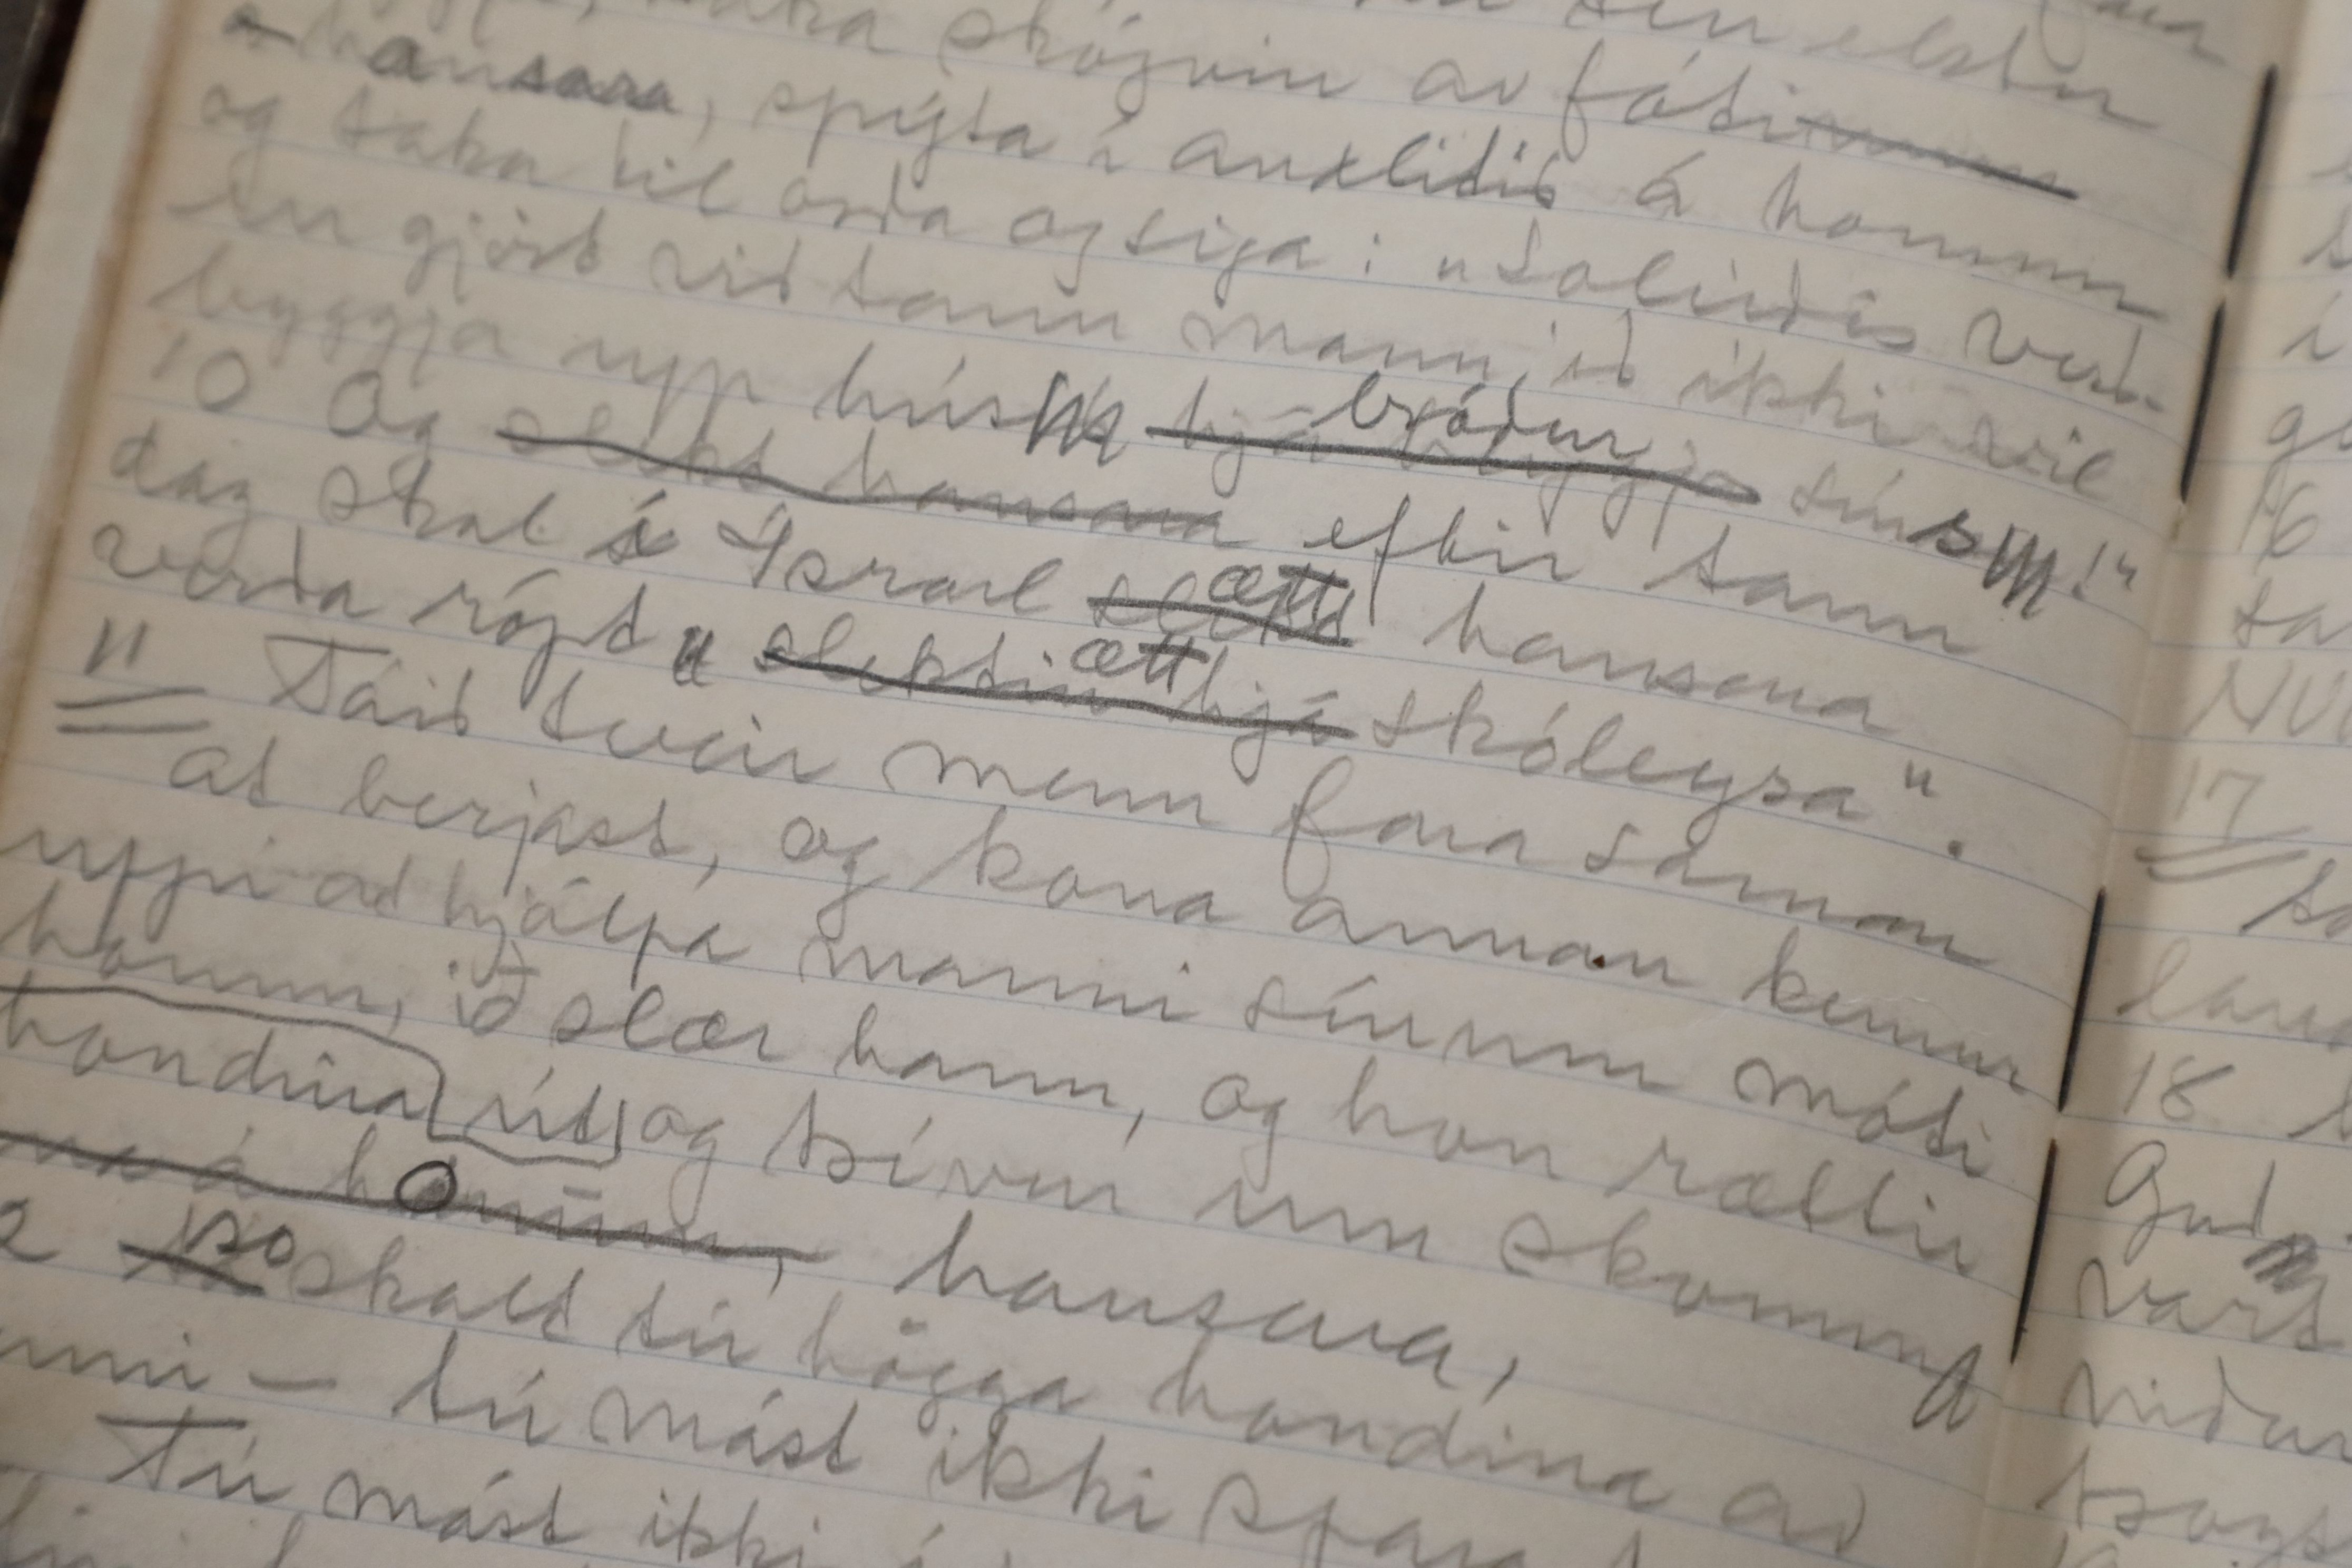 taka skógvin av fótinum
hansara, spýta í anlitið á honum
og taka til orða og siga: "Soleiðis verð-
ur gjørt við tann mann, ið ikki vil
byggja upp hús bróður síns!"
10 Og slekt hansara eftir tann
dag skal í Ísrael ætt hansara
verða rópt "ætt skóleysa".
11 Táið tveir menn fara saman
at berjast, og kona annan kemur
uppí at hjálpa manni sínum móti
honum, ið slær hann, og hon rættir
hondina út og trívur um skomm
á honum, hansara,
so skalt tú høgga hondina av
tú mást ikki spara
Tú mást ikki
16
17
18
Gud
vart
viður